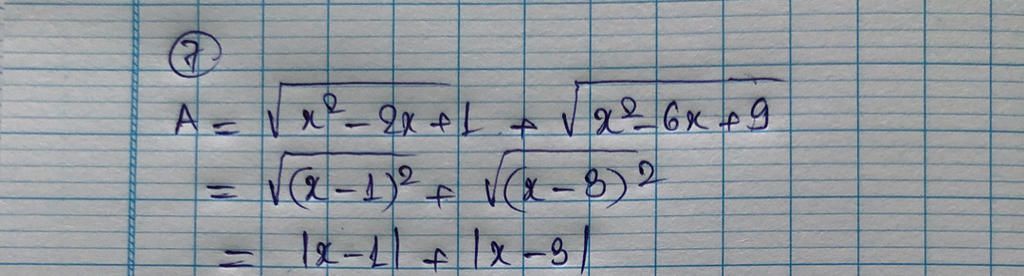 7
A = √(x² - 2x + 1) + √(x² - 6x + 9)
= √(x - 1)² + √(x - 3)²
= |x - 1| + |x - 3|